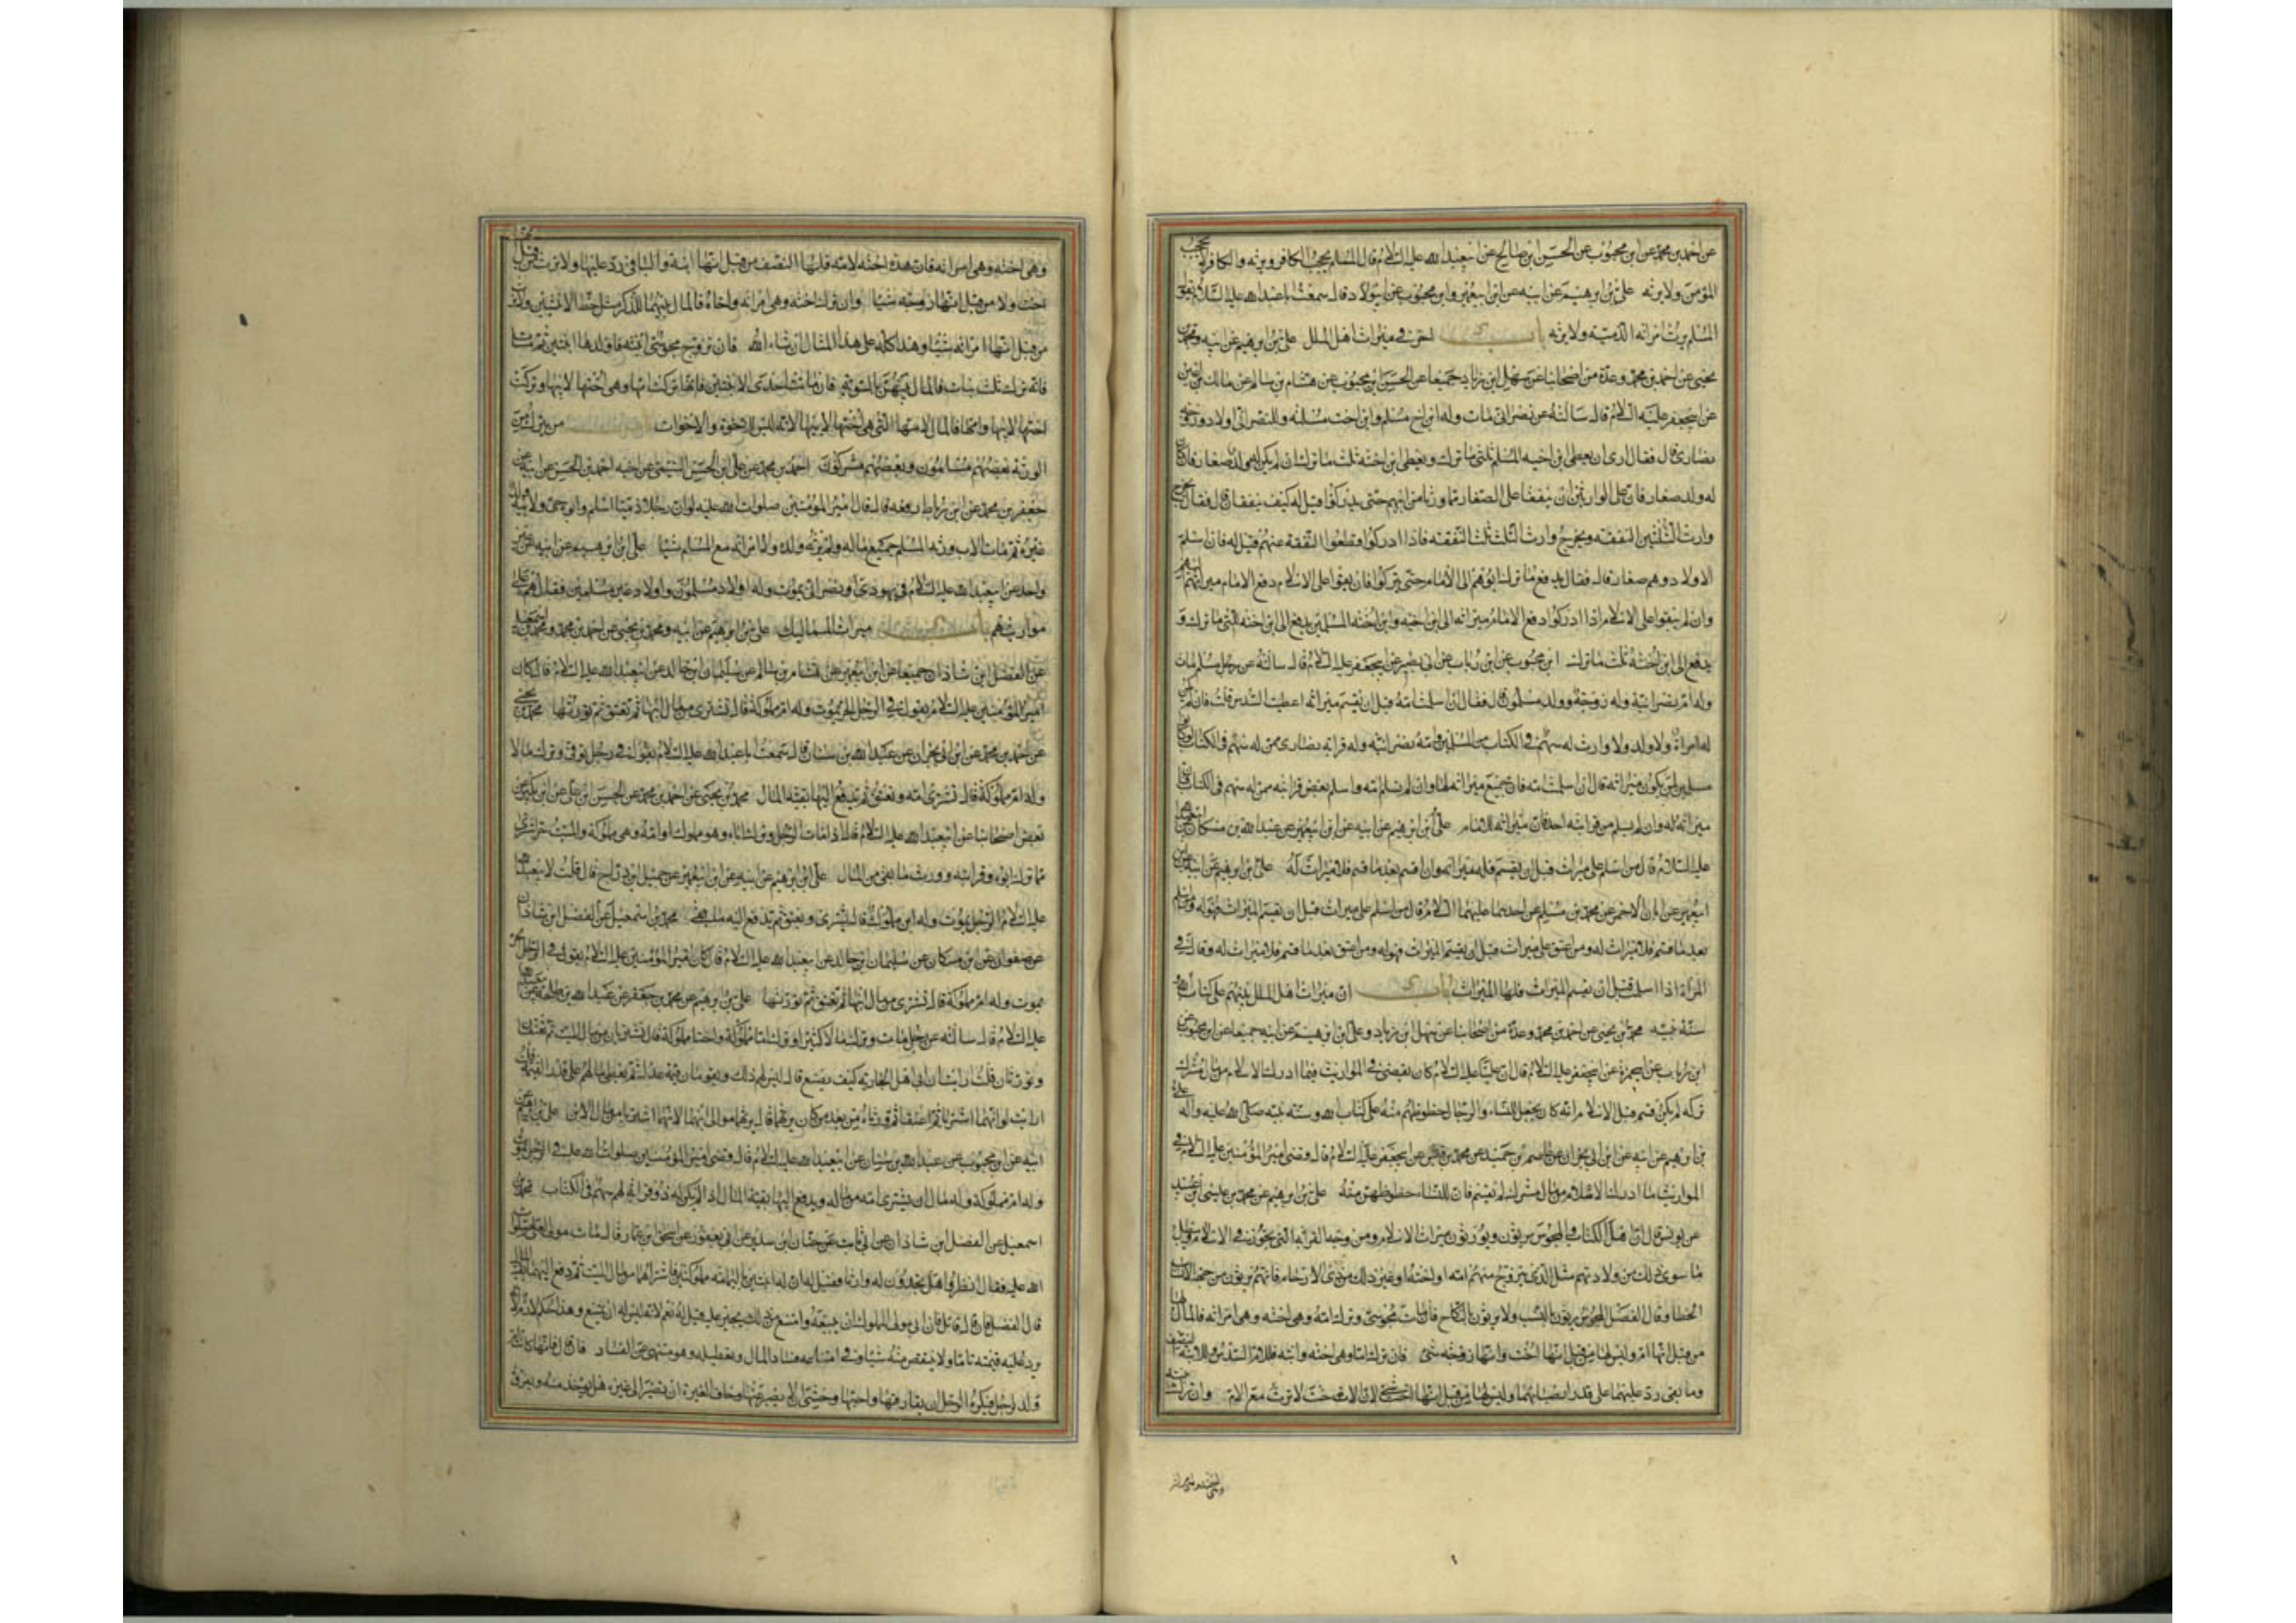 عن احمد بن محمد عن ابن محبوب عن الحسن ابن صالح عن ابيعبد الله عليه السلام قال المسلم يحجب الكافر ويرثه والكافر لا يحجب
المؤمن ولا يرثه علي بن ابرهيم عن ابيه عن ابن ابيعمير وابن محبوب عن ابي ولاد قال سمعت ابا عبد الله عليه السلام يقول
المسلم يرث امراته الذمية ولا ترثه باب اخر في ميراث اهل الملل علي بن ابرهيم عن ابيه ومحمد بن
يحيى عن احمد بن محمد وعدة من اصحابنا عن سهل ابن زياد جميعا عن الحسن ابن محبوب عن هشام بن سالم عن مالك بن اعين
عن ابيجعفر عليه السلام قال سالته عن نصراني مات وله ابن اخ مسلم وابن اخت مسلم وللنصراني اولاد وزوجة
نصارى قال فقال ارى ان يعطى ابن اخيه المسلم ثلثي ما ترك ويعطى ابن اخته ثلث ما ترك ان لم يكن له ولد صغار فان كان
له ولد صغار فان على الوارثين ان ينفقا على الصغار مما ورثا من ابيهم حتى يدركوا قيل له كيف ينفقان قال فقال يخرج
وارث الثلثين ثلثي النفقة ويخرج وارث الثلث ثلث النفقة فاذا ادركوا قطعوا النفقة عنهم قيل له فان اسلم
الاولاد وهم صغار قال فقال يدفع ما ترك ابوهم الى الامام حتى يدركوا فان بقوا على الاسلام دفع الامام ميراثهم اليهم
وان لم يبقوا على الاسلام اذا ادركوا دفع الامام ميراثه الى ابن اخيه وابن اخته المسلمين يدفع الى ابن اخيه ثلثي ما ترك و
يدفع الى ابن اخته ثلث ما ترك ابن محبوب عن ابن رئاب عن ابي بصير عن ابيجعفر عليه السلام قال سالته عن رجل مسلم مات
وله ام نصرانية وله زوجة وولد مسلمون قال فقال ان اسلمت امه قبل ان يقسم ميراثه اعطيت السدس قلت فان لم يكن
له امراة ولا ولد ولا وارث له سهم في الكتاب من المسلمين وامه نصرانية وله قرابة نصارى ممن له سهم في الكتاب لو كانوا
مسلمين لمن يكون ميراثه قال ان اسلمت امه فان جميع ميراثه لها وان لم تسلم امه واسلم بعض قرابته ممن له سهم في الكتاب فان
ميراثه له وان لم يسلم من قرابته احد فان ميراثه للامام علي بن ابرهيم عن ابيه عن ابن ابيعمير عن عبد الله بن مسكان
عليه السلام قال من اسلم على ميراث قبل ان يقسم فله ميراثه وان اسلم بعد ما قسم فلا ميراث له علي بن ابرهيم عن ابيه عن ابن
ابيعمير عن ابان الاحمر عن محمد بن مسلم عن احدهما عليهما السلام قال من اسلم على ميراث قبل ان يقسم الميراث فهو له ومن اسلم
بعد ما قسم فلا ميراث له ومن اعتق على ميراث قبل ان يقسم الميراث فهو له ومن اعتق بعد ما قسم فلا ميراث له وقال في
المراة اذا اسلمت قبل ان يقسم الميراث فلها الميراث باب ان ميراث اهل الملل بينهم على كتاب الله
سنة نبيه محمد بن يحيى عن احمد بن محمد وعدة من اصحابنا عن سهل ابن زياد وعلي ابن ابرهيم عن ابيه جميعا عن ابن محبوب عن
ابن رئاب عن ابيحمزة عن ابيجعفر عليه السلام قال ان عليا عليه السلام كان يقضي في المواريث فيما ادرك الاسلام من مال مشرك
تركه لم يكن قسم قبل الاسلام انه كان يجعل للنساء والرجال حظوظهم منه على كتاب الله وسنة نبيه صلى الله عليه واله علي
بن ابرهيم عن ابيه عن ابن ابي نجران عن عاصم بن حميد عن محمد بن قيس عن ابيجعفر عليه السلام قال وقضى امير المؤمنين عليه السلام في
المواريث ما ادرك الاسلام من مال مشرك لم يقسم فان للنساء حظوظهن منه علي بن ابرهيم عن محمد بن عيسى ابن عبيد
عن يونس قال ان اهل الكتاب والمجوس يرثون ويورثون ميراث الاسلام ومن وجه القرابة التي تجوز في الاسلام ويبطل
ما سوى ذلك من ولادتهم مثل الذي يتزوج منهم امه او اخته او غير ذلك من ذوي الارحام فانهم يرثون من جهة الانساب
الخطا وقال الفضل المجوس يرثون بالنسب ولا يرثون بالنكاح فان مات مجوسي وترك امه وهي اخته وهي امراته فالمال لها
من قبل انها ام وليس لها من قبل انها اخت وانها زوجة شيء فان ترك اما وهي اخته وابنة فللام السدس وللابنة النصف
وما بقي رد عليهما على قدر انصبائهما وليس لها من قبل انها اخت شيء لان الاخت لا ترث مع الام وان ترك ابنته
وهي اخته وهي امراته فان هذه اخته لامه فلها النصف من قبل انها ابنة والباقي رد عليها ولا ترث من قبل انها
اخت ولا من قبل انها زوجته شيئا وان ترك اخته وهي امراته واخاه فالمال بينهما للذكر مثل حظ الانثيين ولا ترث
من قبل انها امراته شيئا وهذا كله على هذا المثال ان شاء الله فان تزوج مجوسي ابنته فاولدها ابنتين ثم مات
فانه ترك ثلث بنات فالمال بينهن بالسوية فان ماتت احدى الابنتين فانها تركت امها وهي اختها لابيها وتركت
اختها لابيها وامها فالمال لامها التي هي اختها لابيها لانه ليس للاخوة والاخوات من يترك من
الورثة بعضهم مسلمون وبعضهم مشركون احمد بن محمد عن علي ابن الحسن التيمي عن اخيه احمد بن الحسن عن ابيه عن
جعفر بن محمد عن ابن رباط رفعه قال قال امير المؤمنين صلوات الله عليه لو ان رجلا ذميا اسلم وابوه حي ولابيه ولد
غيره ثم مات الاب ورثه المسلم جميع ماله ولم يرثه ولده ولا امراته مع المسلم شيئا علي بن ابرهيم عن ابيه عن غير
واحد عن ابيعبد الله عليه السلام في يهودي او نصراني يموت وله اولاد مسلمون واولاد غير مسلمين فقال هم على
مواريثهم باب ميراث المماليك علي بن ابرهيم عن ابيه ومحمد بن يحيى عن احمد بن محمد ومحمد بن اسمعيل
عن الفضل ابن شاذان جميعا عن ابن ابيعمير عن هشام بن سالم عن سليمان ابن خالد عن ابيعبد الله عليه السلام قال كان
امير المؤمنين عليه السلام يقول في الرجل الحر يموت وله ام مملوكة قال تشترى من مال ابنها ثم تعتق ثم تورثها محمد بن يحيى
عن احمد بن محمد عن ابن ابي نجران عن عبد الله بن سنان قال سمعت ابا عبد الله عليه السلام يقول في رجل توفي وترك مالا
وله ام مملوكة قال تشترى امه وتعتق ثم يدفع اليها بقية المال محمد بن يحيى عن احمد بن محمد عن الحسن ابن علي عن ابن بكير عن
بعض اصحابنا عن ابيعبد الله عليه السلام قال اذا مات الرجل وترك اباه وهو مملوك او امه وهي مملوكة والميت حر اشتري
مما ترك ابوه وقرابته وورث ما بقي من المال علي بن ابرهيم عن ابيه عن ابن ابيعمير عن جميل ابن دراج قال قلت لابيعبد الله
عليه السلام الرجل يموت وله ابن مملوك قال يشترى ويعتق ثم يدفع اليه ما بقي محمد بن اسمعيل عن الفضل ابن شاذان
عن صفوان عن ابن مسكان عن سليمان ابن خالد عن ابيعبد الله عليه السلام قال كان امير المؤمنين عليه السلام يقول في الرجل الحر
يموت وله ام مملوكة قال تشترى من مال ابنها ثم تعتق ثم يورثها علي بن ابرهيم عن محمد بن جعفر عن عبد الله بن طلحة عن ابيعبد الله
عليه السلام قال سالته عن رجل مات وترك مالا كثيرا وترك اما مملوكة واختا مملوكة قال تشتريان من مال الميت ثم تعتقان
وتورثان قلت ارايت ان ابى اهل الجارية كيف يصنع قال ليس لهم ذلك ويقومان قيمة عدل ثم يعطى مالهم على قدر القيمة قلت
ارايت لو انهما اشتريا ثم اعتقا ثم ورثاه من بعد من كان يرثهما قال يرثهما موالي ابنهما لانهما اشتريا من مال الابن علي بن ابرهيم عن
ابيه عن ابن محبوب عن عبد الله بن سنان عن ابيعبد الله عليه السلام قال قضى امير المؤمنين صلوات الله عليه في الرجل يموت
وله ام مملوكة وله مال ان يشترى امه من ماله ويدفع اليها بقية المال اذا لم يكن له ذو قرابة لهم سهم في الكتاب محمد بن
اسمعيل عن الفضل ابن شاذان عن ابي ثابت عن حنان ابن سدير عن ابي يعفور عن اسحق ابن عمار قال مات مولى لعلي صلوات
الله عليه فقال انظروا هل تجدون له وارثا فقيل له ان له ابنتين باليمامة مملوكتين فاشتراهما من مال الميت ثم دفع اليهما بقية المال
قال الفضل فان قال قائل فان ابى مولى المملوك ان يبيعه وامتنع من ذلك يجبر عليه قيل له نعم لانه ليس له ان يمتنع وهذا حكم لازم لانه
يرد عليه قيمته تاما ولا ينقص منه شيئا وفي امتناعه فساد المال وتعطيله وهو منهي عن الفساد فان قال فانها كانت ام
ولد لرجل فيكره الرجل ان يفارقها واحبها وخشي ان لا يصبر عنها وخاف الغيرة ان تصير الى غيره هل تؤخذ منه ويفرق